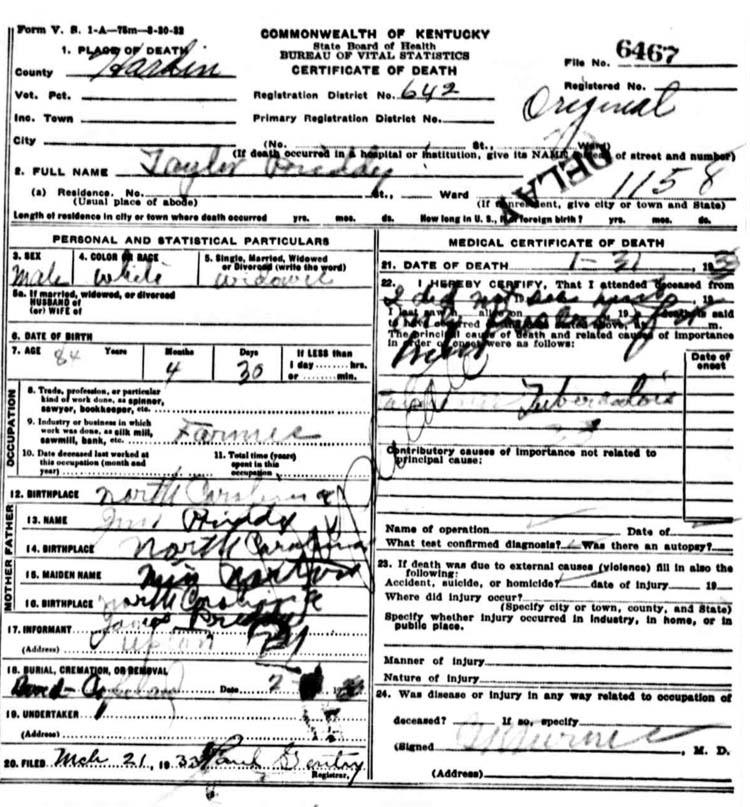 Form V. S. 1-A—75m—8-30-32
COMMONWEALTH OF KENTUCKY
State Board of Health
BUREAU OF VITAL STATISTICS
CERTIFICATE OF DEATH
File No. 6467
Registered No.
Original
1. PLACE OF DEATH
County Hardin
Vot. Pct.
Registration District No. 642
Inc. Town
Primary Registration District No.
City (No. St., Ward)
(If death occurred in a hospital or institution, give its NAME of street and number)
DELAY
2. FULL NAME Taylor Priddy
1158
(a) Residence. No. St., Ward
(Usual place of abode) (If nonresident, give city or town and State)
Length of residence in city or town where death occurred yrs. mos. ds. How long in U. S., if of foreign birth? yrs. mos. ds.
PERSONAL AND STATISTICAL PARTICULARS
3. SEX Male
4. COLOR OR RACE White
5. Single, Married, Widowed or Divorced (write the word)
5a. If married, widowed, or divorced
HUSBAND of
(or) WIFE of
6. DATE OF BIRTH
7. AGE 84 Years Months 4 Days 30 If LESS than
1 day hrs.
or min.
OCCUPATION
8. Trade, profession, or particular
kind of work done, as spinner,
sawyer, bookkeeper, etc.
9. Industry or business in which
work was done, as silk mill,
sawmill, bank, etc. Farmer
10. Date deceased last worked at
this occupation (month and
year)
11. Total time (years)
spent in this
occupation
12. BIRTHPLACE North Carolina
FATHER
13. NAME Jim Priddy
14. BIRTHPLACE North Carolina
MOTHER
15. MAIDEN NAME
16. BIRTHPLACE North Carolina
17. INFORMANT James Priddy
(Address) Upton
18. BURIAL, CREMATION, OR REMOVAL
Date 2
19. UNDERTAKER
(Address)
20. FILED Mch 21, 1933 Paul Gentry
Registrar.
MEDICAL CERTIFICATE OF DEATH
21. DATE OF DEATH 1-31, 1933
22. I HEREBY CERTIFY, That I attended deceased from
I did not see
I last saw h alive on 19 death is said
to have occurred on the date stated above, at m.
The principal cause of death and related causes of importance
in order of onset were as follows:
Date of
onset
Tuberculosis
Contributory causes of importance not related to
principal cause:
Name of operation Date of
What test confirmed diagnosis? Was there an autopsy?
23. If death was due to external causes (violence) fill in also the
following:
Accident, suicide, or homicide? date of injury 19
Where did injury occur?
(Specify city or town, county, and State)
Specify whether injury occurred in industry, in home, or in
public place.
Manner of injury
Nature of injury
24. Was disease or injury in any way related to occupation of
deceased? If so, specify
(Signed) , M. D.
(Address)